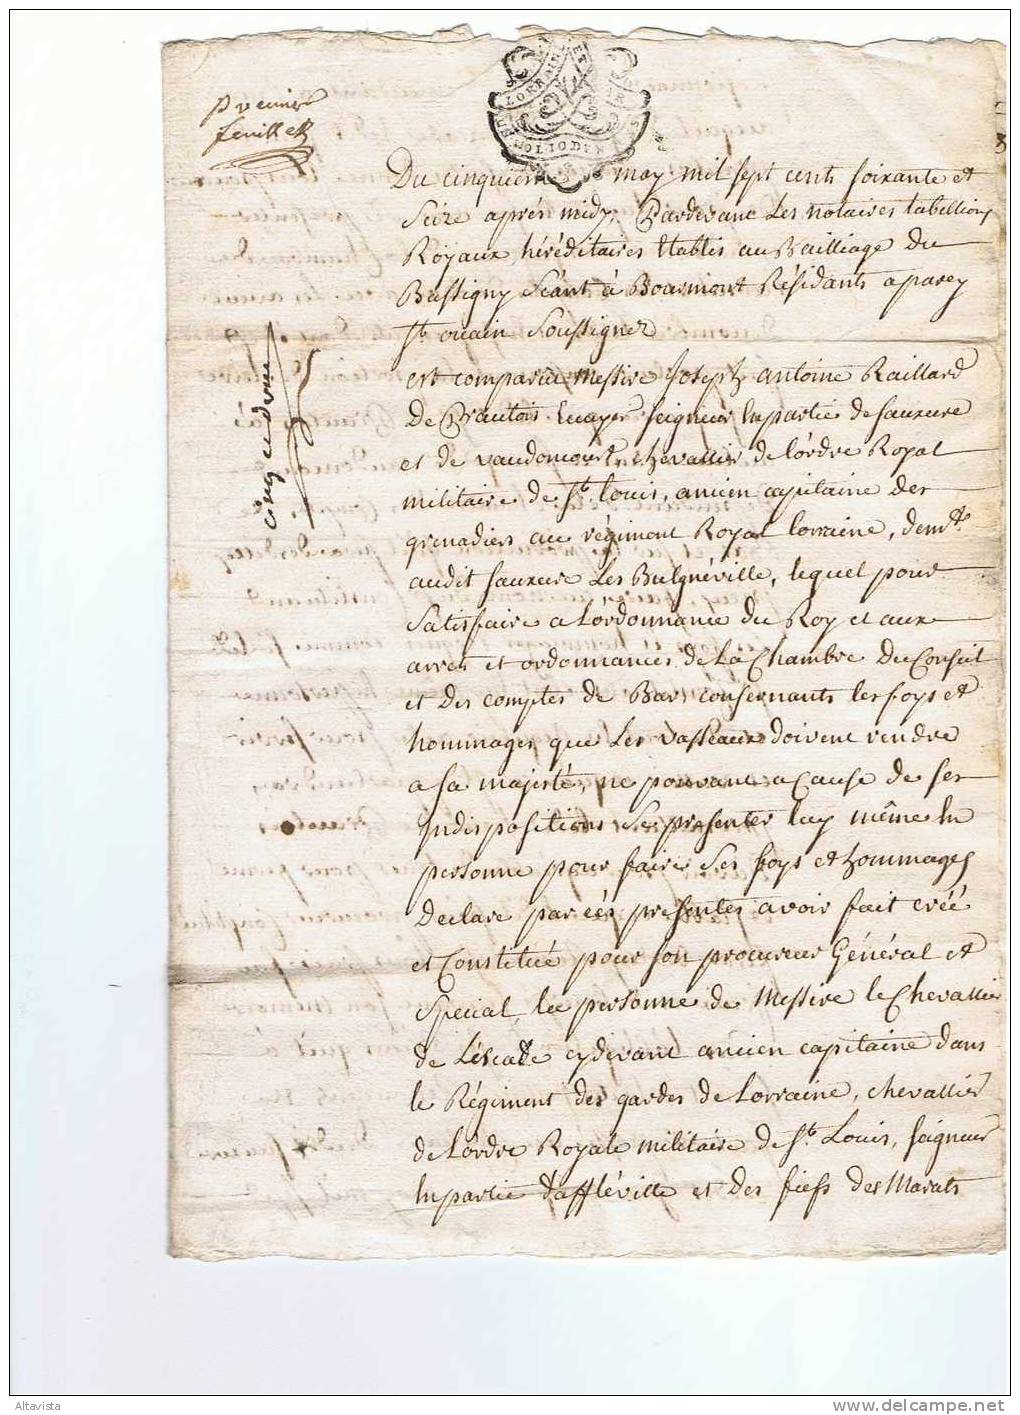 premier
feuillet
LORRAINE ET BAR
Du cinquieme may mil sept cents soixante et
Seize aprés midy, Pardevant Les notaires tabellions
Royaux héréditaires Etablis au Bailliage du
Bassigny Séant à Bourmont Résidants a parey
St. ouain Soussignez
est comparu Messire Joseph antoine Raillard
De Ecuyer seigneur En partie de sauxure
et de vaudoncourt, chevallier de l'órdre Royal
militaire de St. Louis, ancien capitaine des
grenadiers au régiment Royal lorraine, demt.
audit sauxure Les Bulgnéville, lequel pour
Satisfaire a L'órdonnance du Roy et aux
arrets et ordonnances de La Chambre Du Conseil
et des comptes de Bar, consernants les foys et
hommages que Les vasseaux doivent rendre
a sa majesté, ne pouvant a Cause de ses
Indispositions Se presenter luy même En
personne pour faire Ses foys et hommages
Declare par ces presentes avoir fait créé
et Constitué pour son procureur Général et
Special, la personne de Messire le Chevallier
de cydevant ancien capitaine dans
le Régiment des gardes de Lorraine, chevallier
de L'ordre Royale militaire de St. Louis, seigneur
En partie d'affléville et des fiefs des Marats
cinq
Altavista
www.delcampe.net